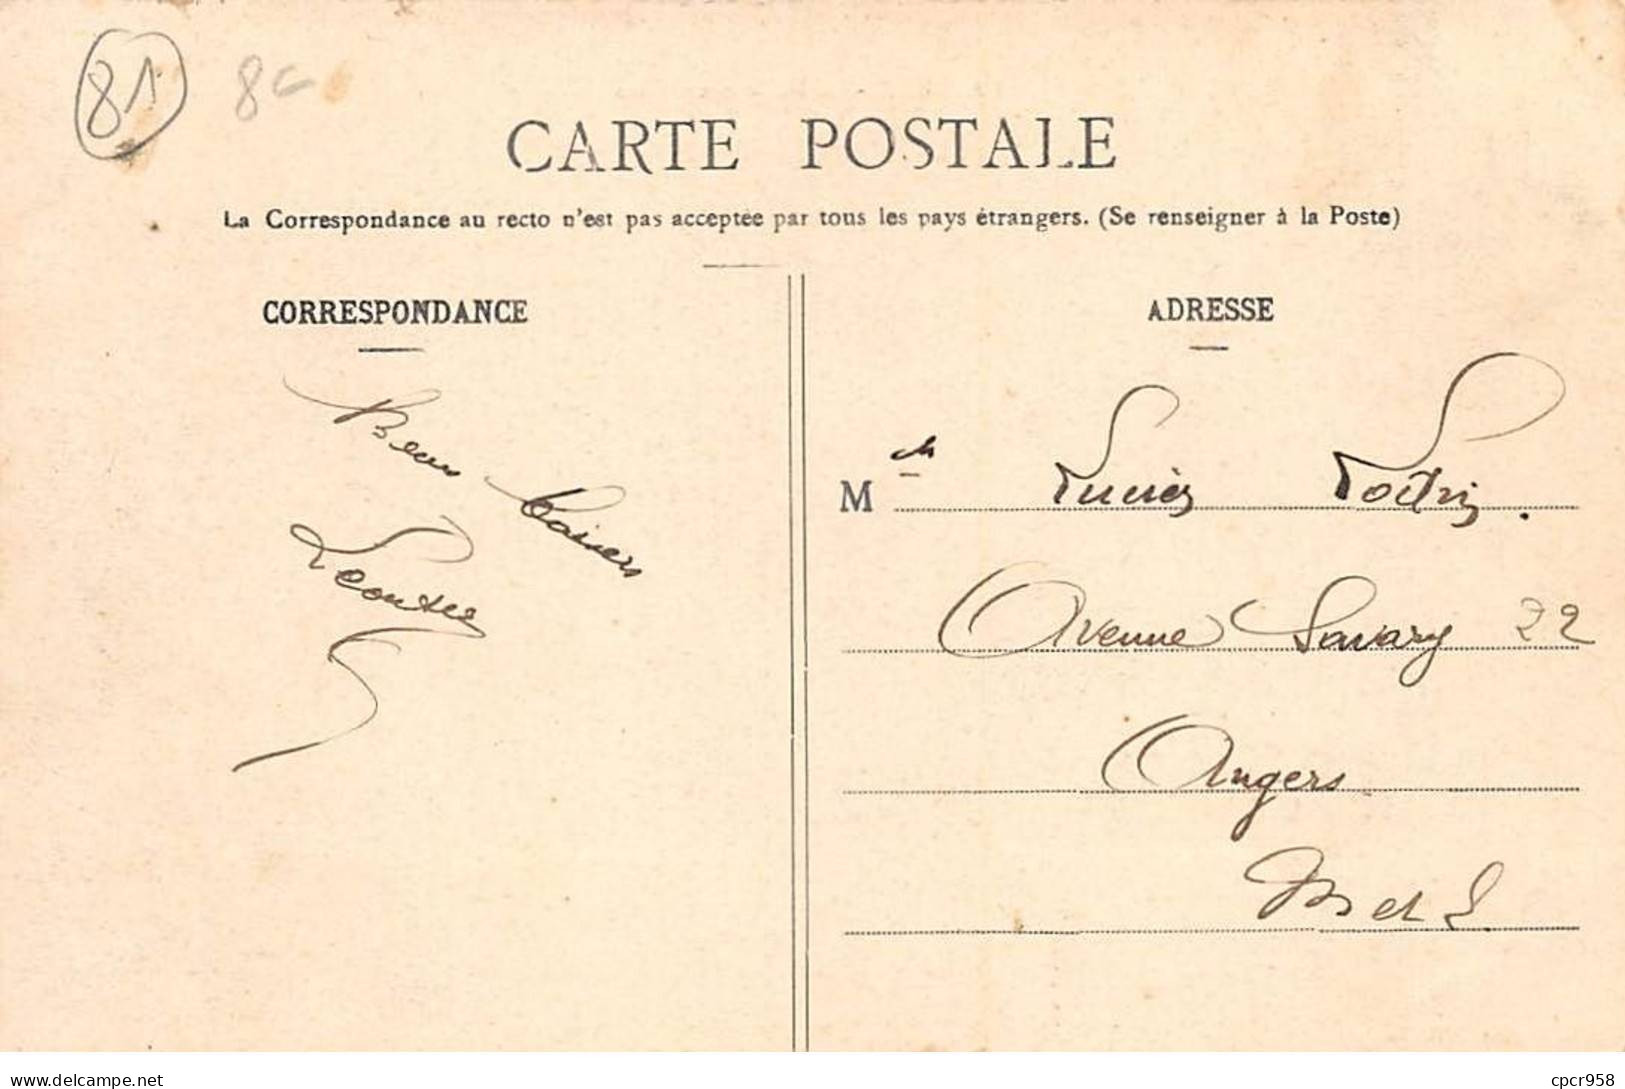 81
8€
CARTE POSTALE
La Correspondance au recto n'est pas acceptée par tous les pays étrangers. (Se renseigner à la Poste)
CORRESPONDANCE
ADRESSE
Bons baisers
Léontine
M
Avenue Savary 22
Angers
M et L
www.delcampe.net
cpcr958